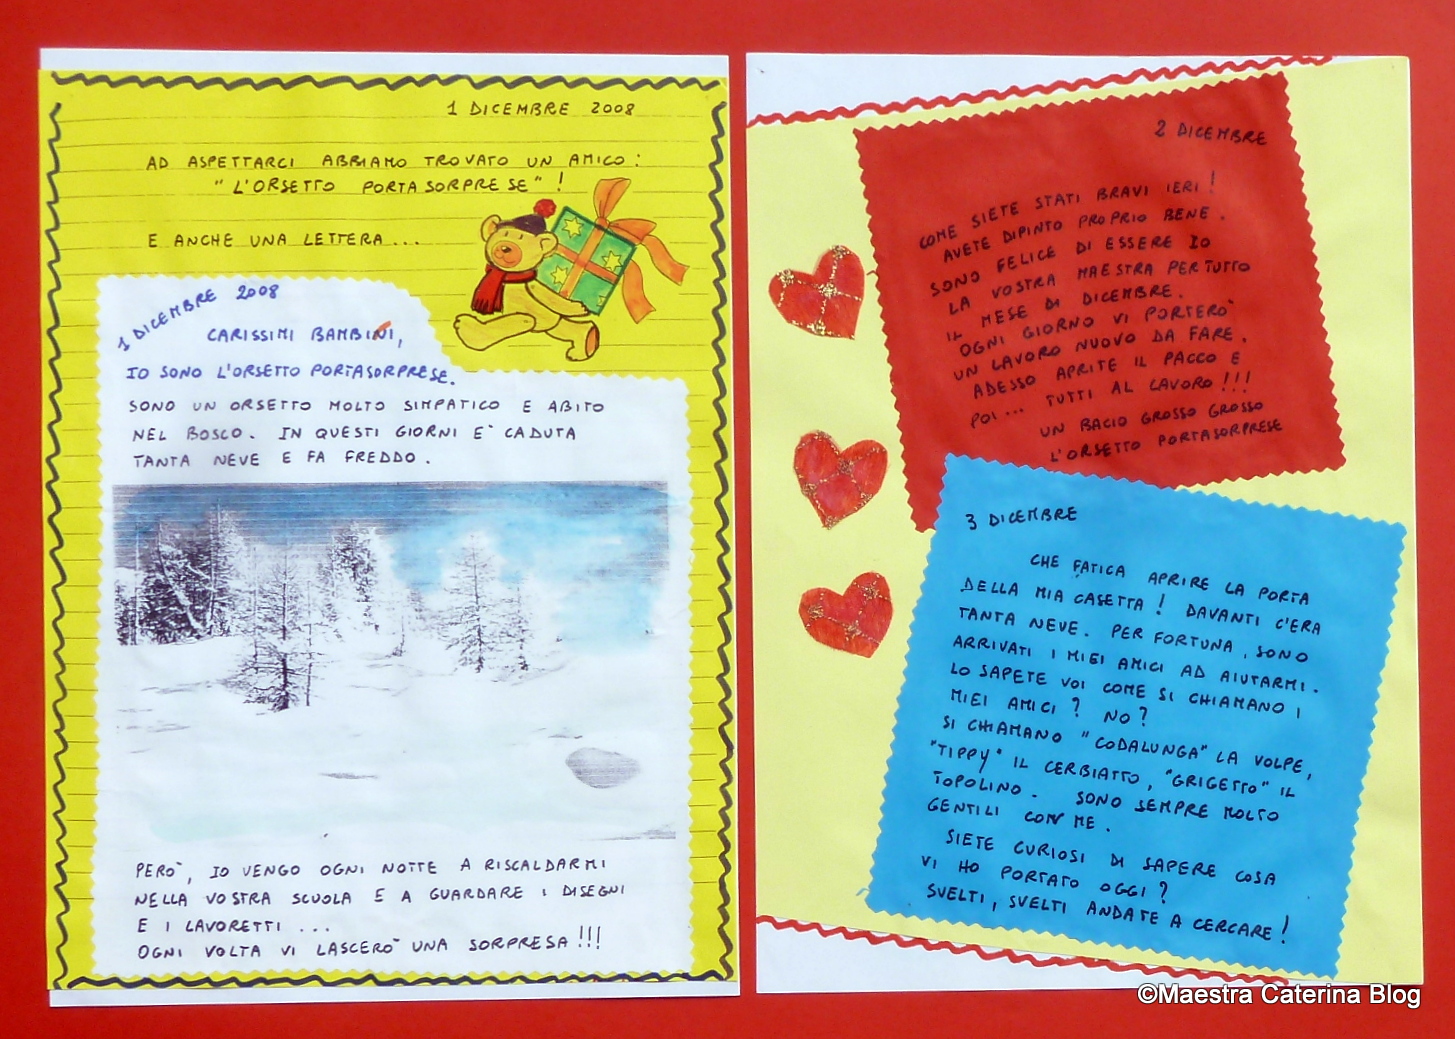 1 DICEMBRE 2008
AD ASPETTARCI ABBIAMO TROVATO UN AMICO:
"L'ORSETTO PORTA SORPRESE"!
E ANCHE UNA LETTERA...
1 DICEMBRE 2008
CARISSIMI BAMBINI,
IO SONO L'ORSETTO PORTASORPRESE.
SONO UN ORSETTO MOLTO SIMPATICO E ABITO
NEL BOSCO. IN QUESTI GIORNI E' CADUTA
TANTA NEVE E FA FREDDO.
PERO', IO VENGO OGNI NOTTE A RISCALDARMI
NELLA VOSTRA SCUOLA E A GUARDARE I DISEGNI
E I LAVORETTI ...
OGNI VOLTA VI LASCERO' UNA SORPRESA!!!
2 DICEMBRE
COME SIETE STATI BRAVI IERI!
AVETE DIPINTO PROPRIO BENE.
SONO FELICE DI ESSERE IO
LA VOSTRA MAESTRA PER TUTTO
IL MESE DI DICEMBRE.
OGNI GIORNO VI PORTERO'
UN LAVORO NUOVO DA FARE.
ADESSO APRITE IL PACCO E
POI... TUTTI AL LAVORO!!!
UN BACIO GROSSO GROSSO
L'ORSETTO PORTASORPRESE
3 DICEMBRE
CHE FATICA APRIRE LA PORTA
DELLA MIA CASETTA! DAVANTI C'ERA
TANTA NEVE. PER FORTUNA, SONO
ARRIVATI I MIEI AMICI AD AIUTARMI.
LO SAPETE VOI COME SI CHIAMANO I
MIEI AMICI? NO?
SI CHIAMANO "CODALUNGA" LA VOLPE,
"TIPPY" IL CERBIATTO, "GRIGETTO" IL
TOPOLINO. SONO SEMPRE MOLTO
GENTILI CON ME.
SIETE CURIOSI DI SAPERE COSA
VI HO PORTATO OGGI?
SVELTI, SVELTI ANDATE A CERCARE!
©Maestra Caterina Blog